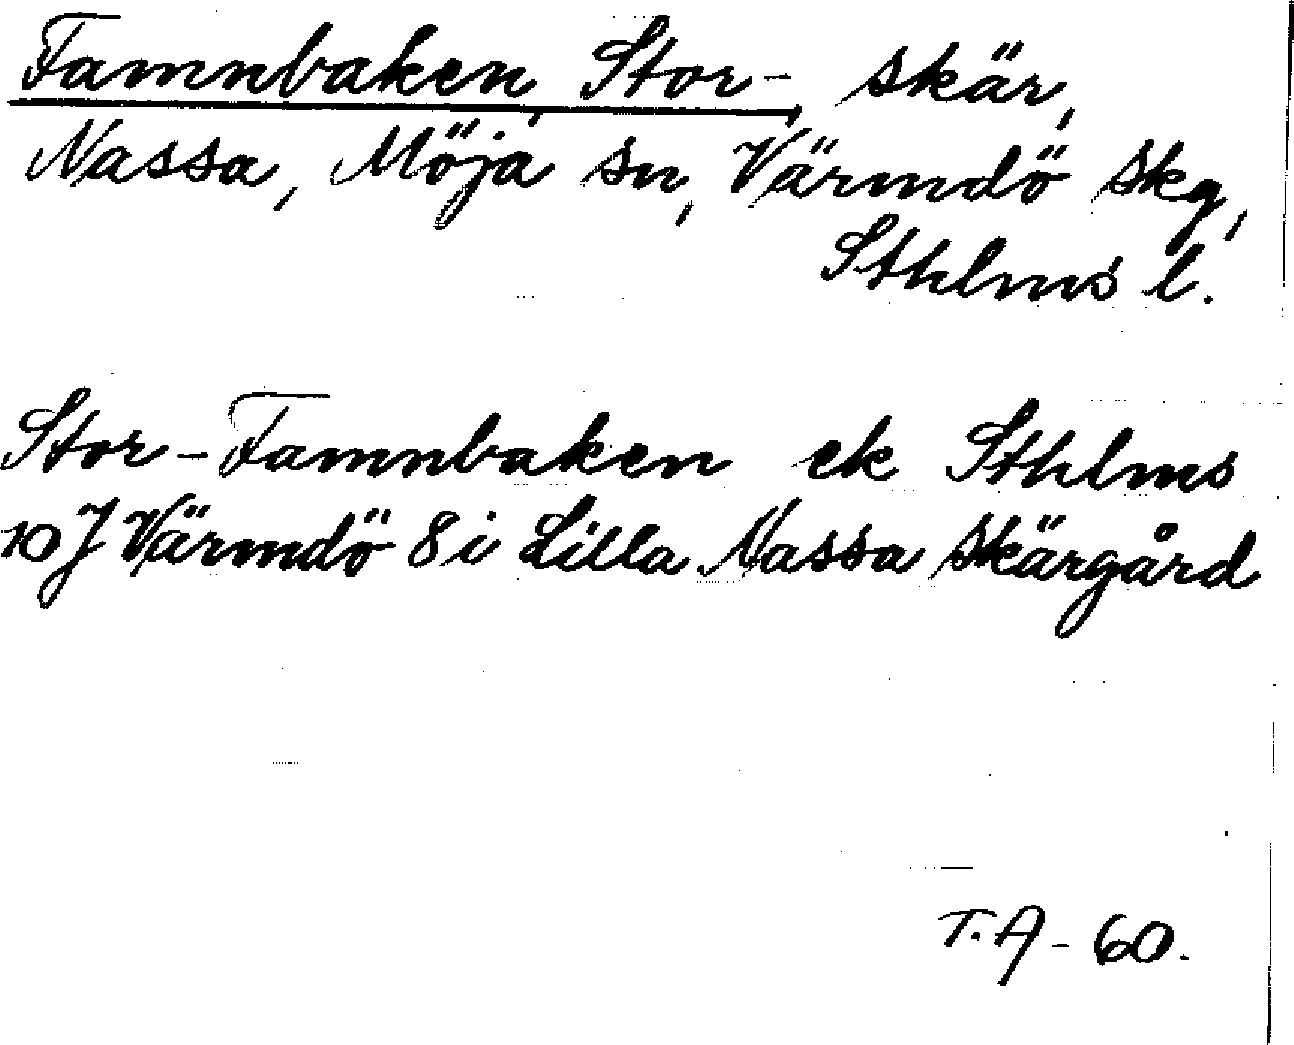 Famnbaken, Stor-, skär,
Nassa, Möja sn, Värmdö skg,
Sthlms l.
Stor-Famnbaken ek Sthlms
10 J Värmdö 8 i Lilla Nassa skärgård
T. A - 60.